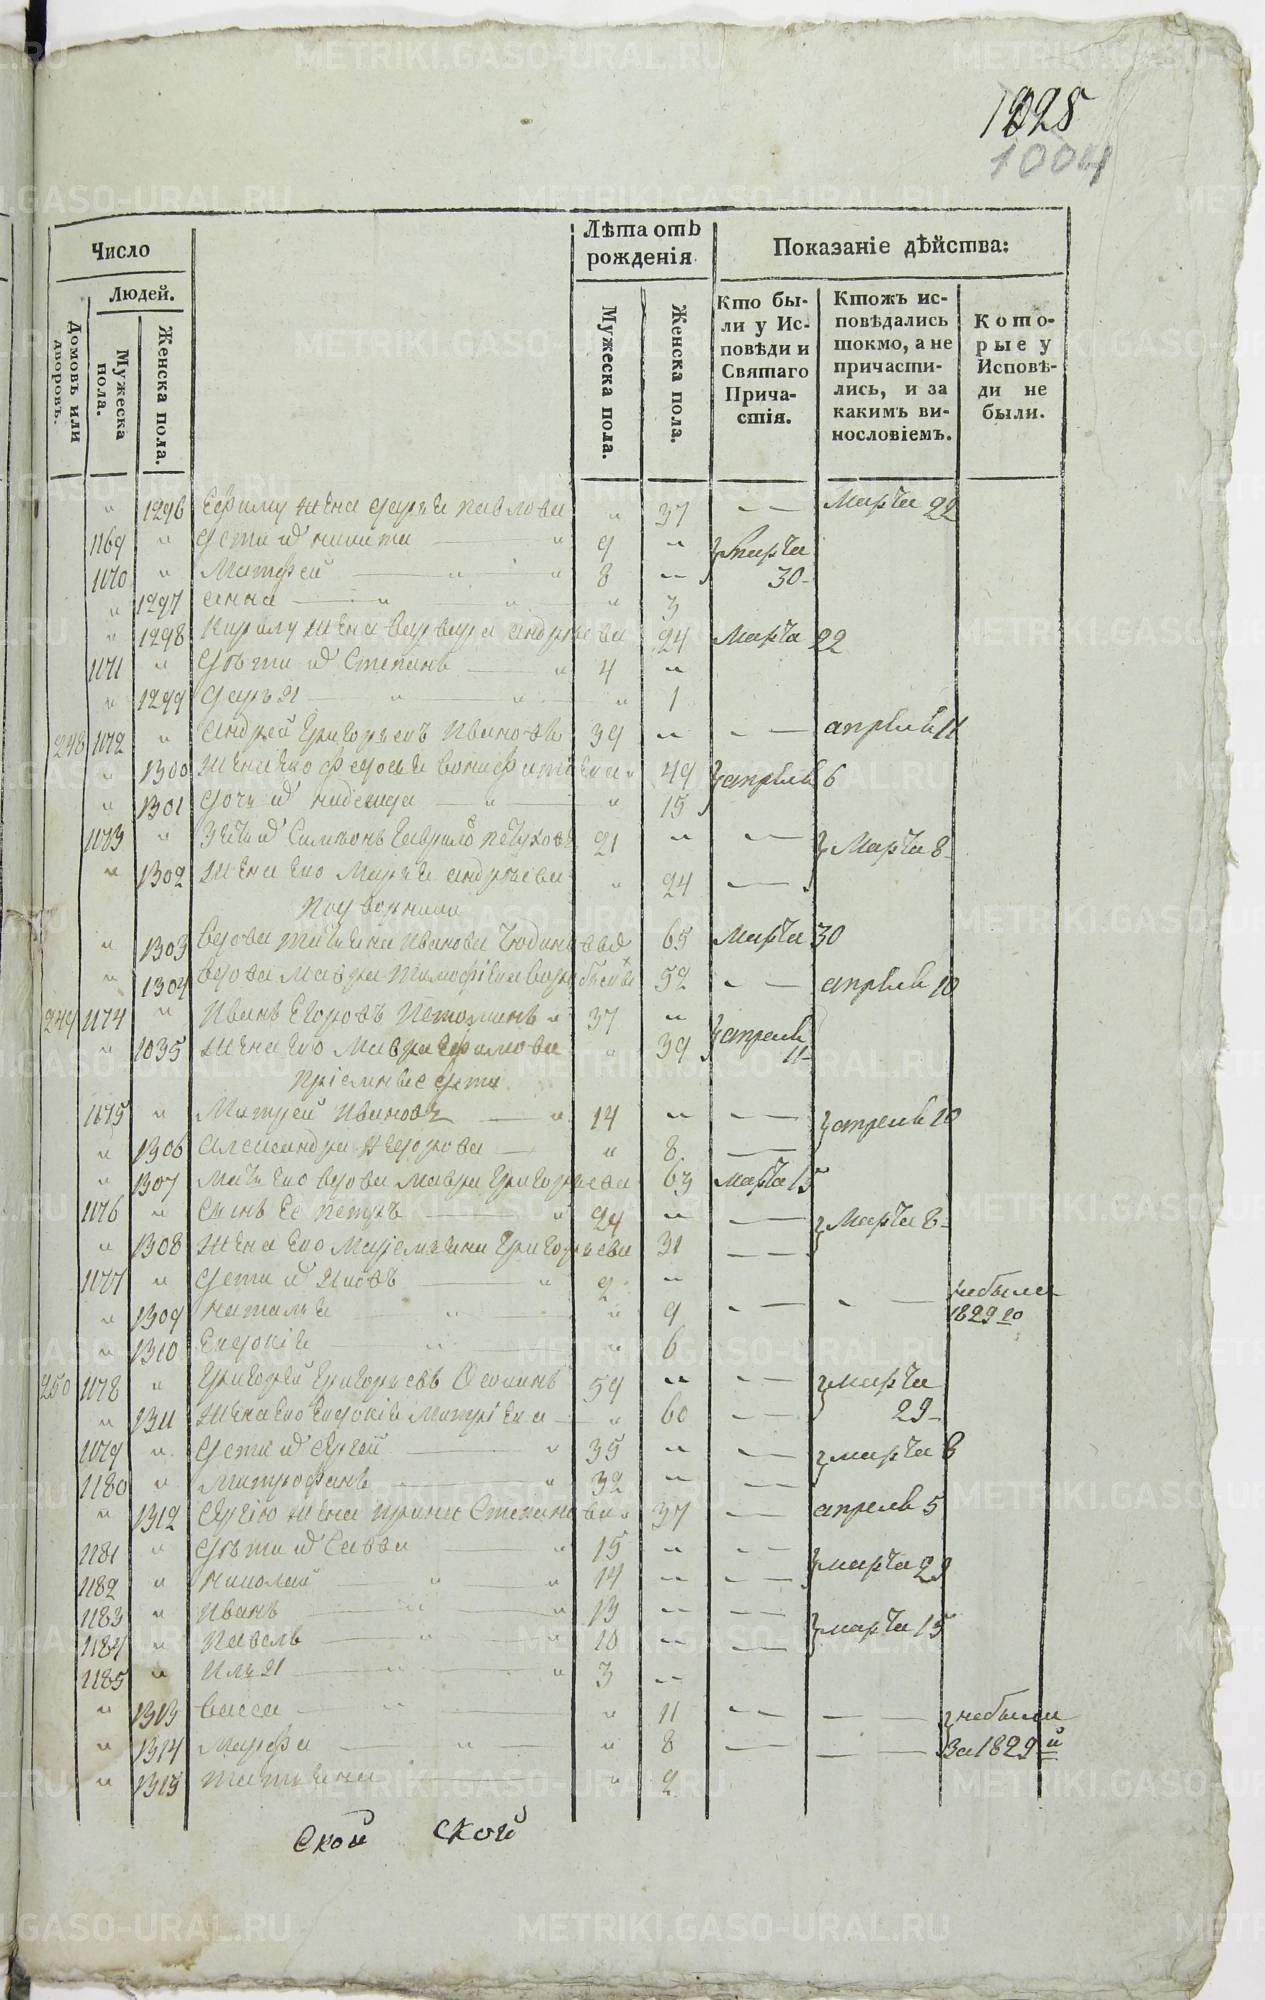 1028
1004
Число
Людей.
Домовъ или дворовъ.
Мужеска пола.
Женска пола.
Лѣта отъ рожденія.
Мужеска пола.
Женска пола.
Показаніе дѣйства:
Кто бы-
ли у Ис-
повѣди и
Святаго
Прича-
стія.
Ктожъ ис-
повѣдались
токмо, а не
причасти-
лись, и за
какимъ ви-
нословіемъ.
Кото-
рые у
Исповѣ-
ди не
были.
" 1296 Ефиму жена Дарья Павлова " 37 — — Марта 22
1169 " Дети их Никита — " 9 " Марта
1170 " Матфей — " " 8 " 30
" 1297 Анна — " " " 3
" 1298 Кирилу жена Варвара Андреева 24 Марта 22
1171 " Дѣти их Степанъ — " 4 "
" 1299 Дарья — " " " 1
248 1172 " Андрей Григорьевъ Ивановъ 39 " — — апреля 11
" 1300 Жена его Федосья Вонифатьева " 49 апреля 6
" 1301 Дочь их Надежда — " — " 15
1173 " Зять их Симионъ Гаврилов Петухов 21 " — — Марта 8
" 1302 Жена его Марья Андреева " 24 —
Подворники
" 1303 Вдова Татьяна Иванова 65 Марта 30
" 1304 Вдова Мавра Тимофеева 52 — — апреля 10
249 1174 " Иванъ Егоровъ " 37 " апреля
" 1035 Жена его Мавра Ефимова " 39 11
Пріемные дети
1175 " Матвей Ивановъ — " 14 " — апреля 10
" 1306 Александра Федорова — " 8 —
" 1307 Мать его вдова Мавра Григорьева 63 Марта 15
1176 " Сынъ ее Петръ — " 24 " — Марта 8
" 1308 Жена его Маремьяна Григорьева 31 —
1177 " Дети их Яковъ — " 2 "
" 1309 Наталья — " " 9 — — — небыли
1829го
" 1310 Евдокія — " " 6
250 1178 " Григорей Григорьевъ Осминъ 59 " — — марта
" 1311 Жена его Евдокія Матвеева — " 60 — 29
1179 " Дети их Сергей — " 35 " — марта 8
1180 " Митрофанъ — " 32 " —
" 1312 Сергею жена Ирина Степанова " 37 — апреля 5
1181 " Дѣти их Савва — " 15 " — марта 29
1182 " Николай — " " 14 " —
1183 " Иванъ — " " 13 " — марта 15
1184 " Павелъ — " " 10 " —
1185 " Илья — " " 3 "
" 1313 Васса — " " 11 — — — небыли
" 1314 Марфа — " " 8 — — За 1829й
" 1315 Татьяна — " 2
Ской ской
METRIKI.GASO-URAL.RU